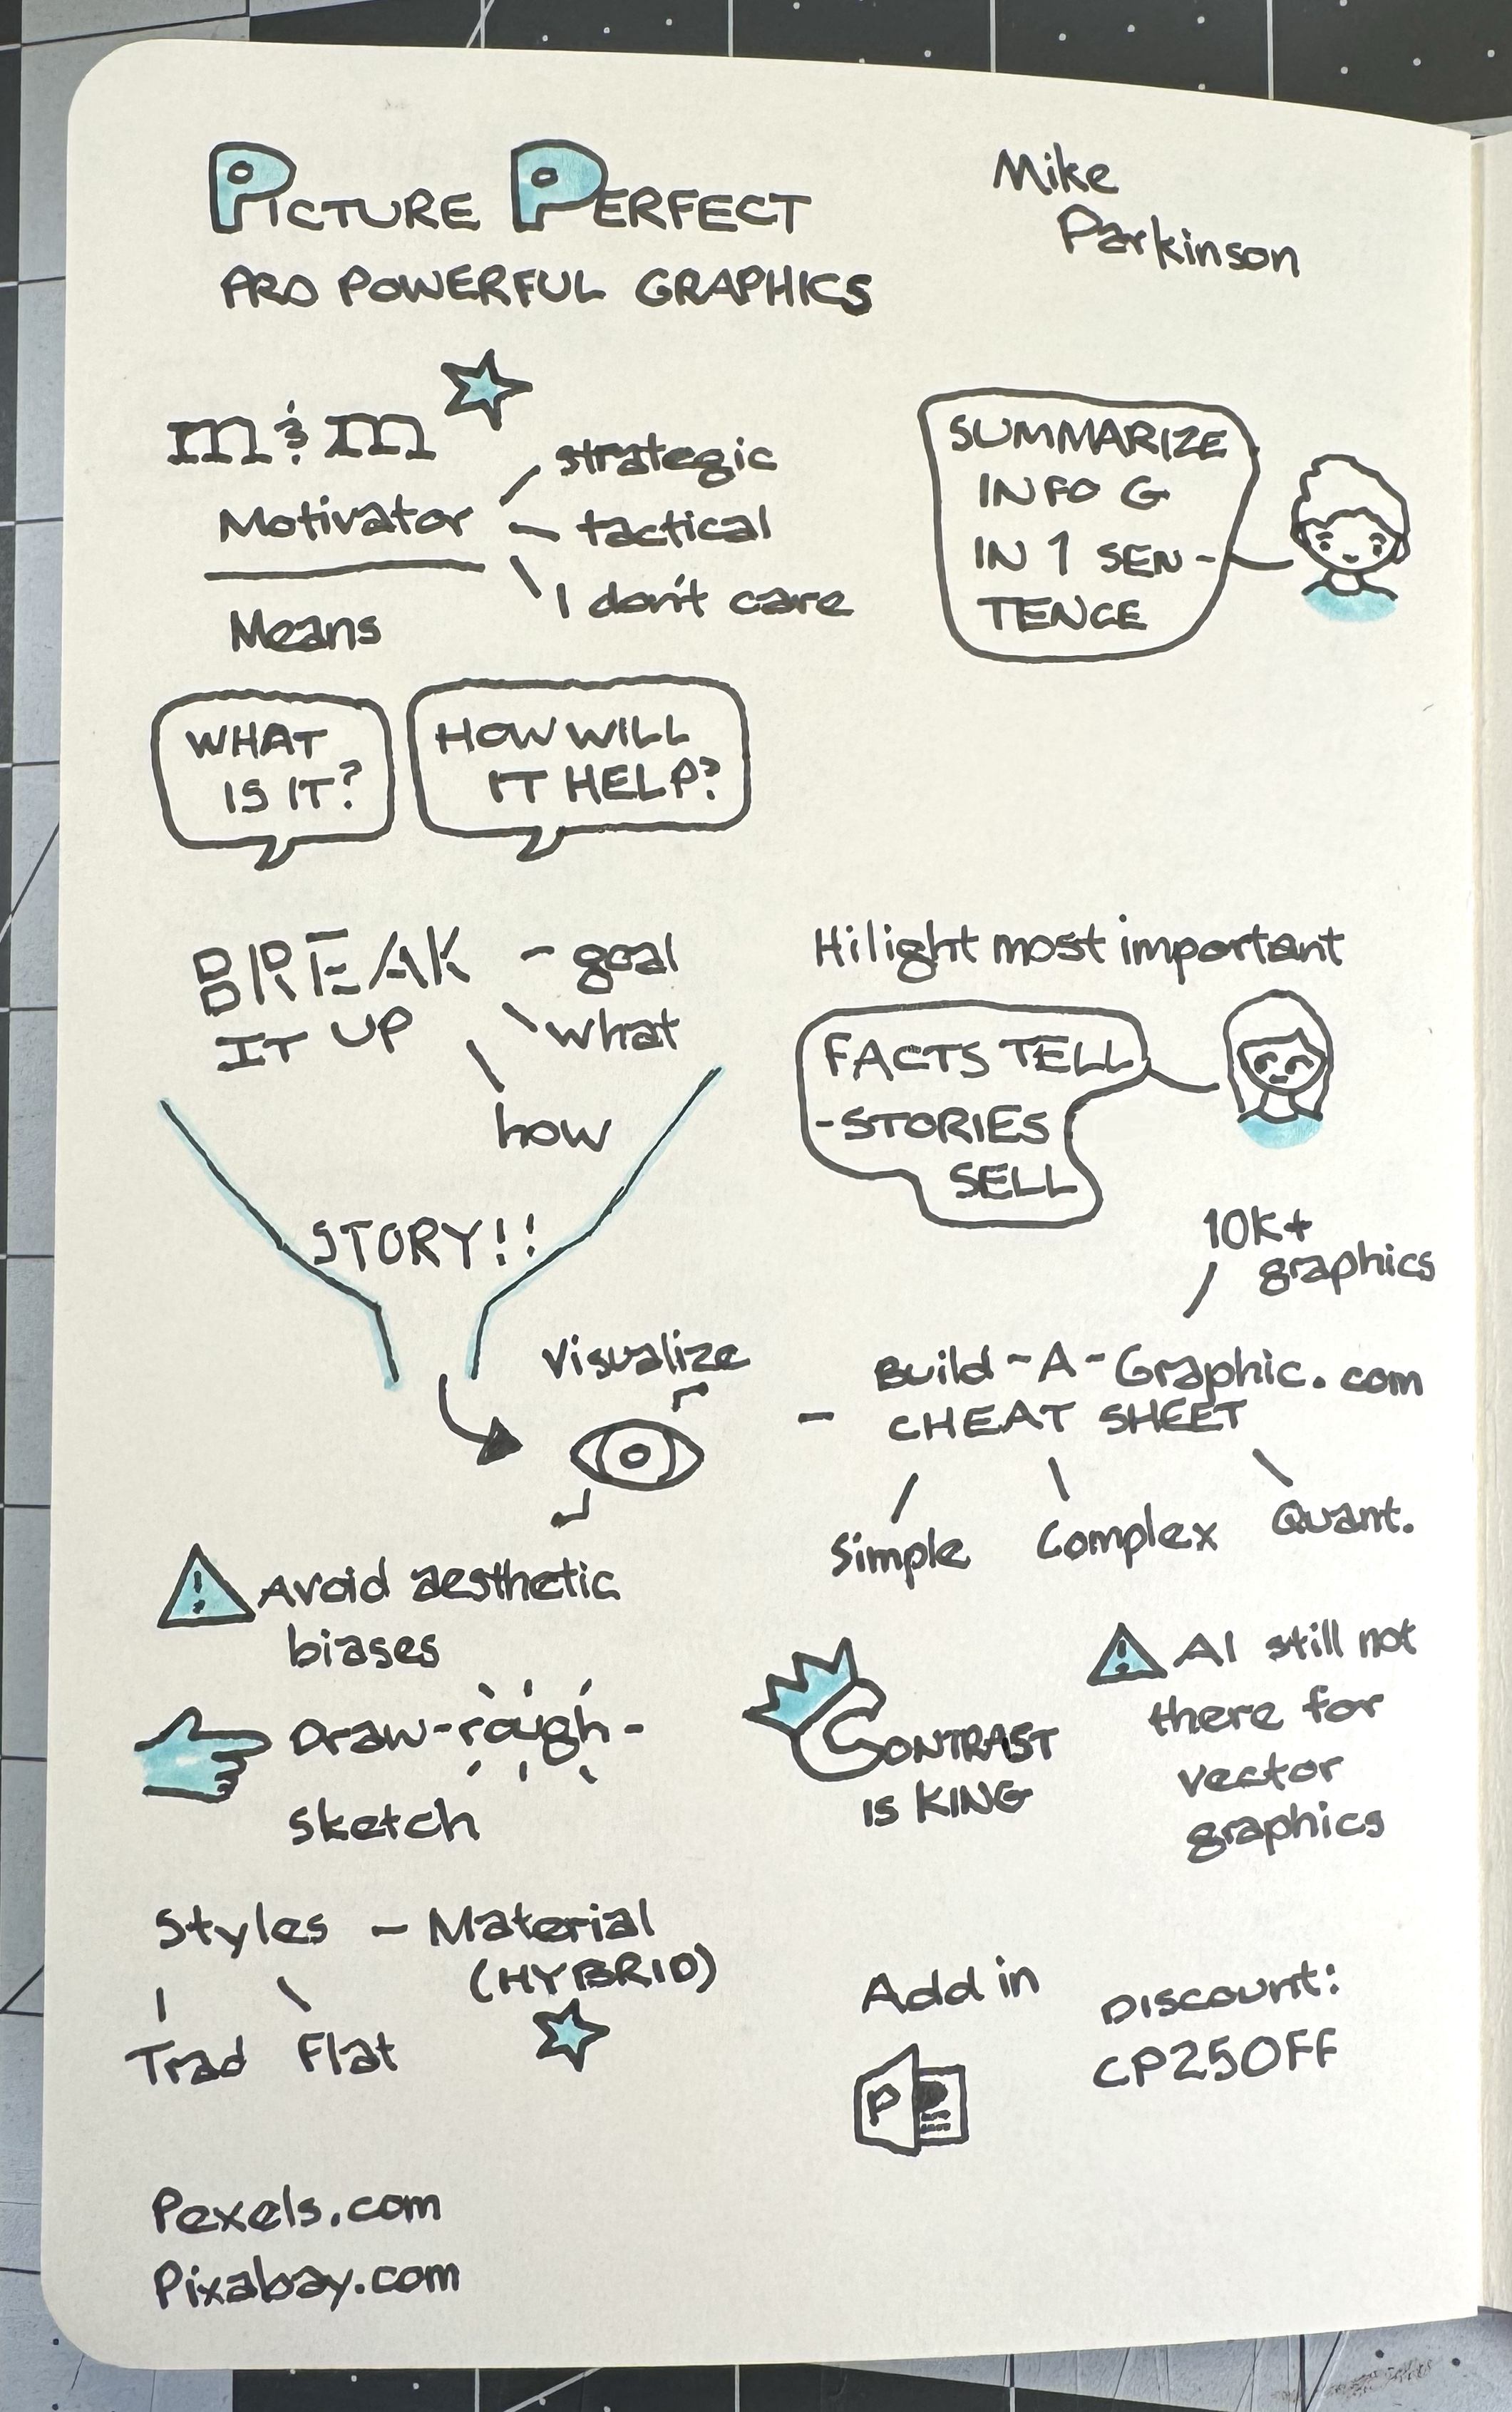 PICTURE PERFECT
PRO POWERFUL GRAPHICS
Mike
Parkinson
m & m
Motivator
strategic
tactical
I don't care
Means
SUMMARIZE
INFO G
IN 1 SEN-
TENCE
WHAT
IS IT?
HOW WILL
IT HELP?
BREAK
IT UP
- goal
what
how
STORY!!
Visualize
Hilight most important
FACTS TELL
-STORIES
SELL
10K+
graphics
Build-A-Graphic.com
- CHEAT SHEET
Simple
Complex
Quant.
! Avoid aesthetic
biases
Draw-rough-
sketch
CONTRAST
IS KING
! AI still not
there for
vector
graphics
Styles - Material
(HYBRID)
Trad
Flat
Add in
P
DISCOUNT:
CP25OFF
Pexels.com
Pixabay.com